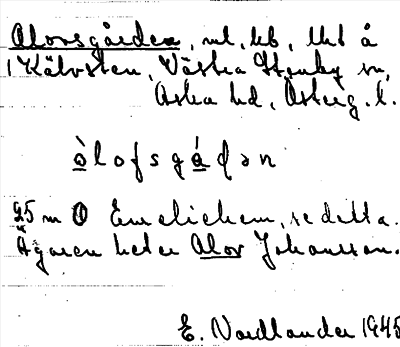 Alovsgården, ut, lht å
1 Kälvsten, Västra Stenby sn,
Aska hd, Österg. l.
òlofsgáꞌdən
25 m O Emeliehem, se detta.
Ägaren heter Alov Johansson.
E. Nordlander 1945